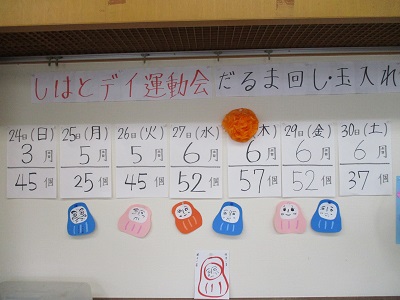 しはとデイ運動会 だるま回し・玉入れ
24日(日) 25日(月) 26日(火) 27日(水) 木) 29日(金) 30日(土)
3周 5周 5周 6周 6周 6周 6周
45個 25個 45個 52個 57個 52個 37個